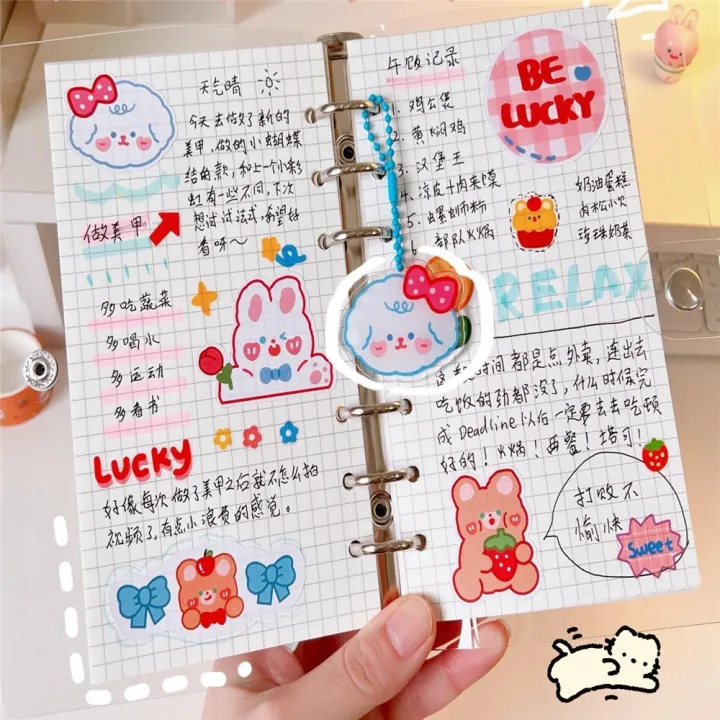 天气晴
今天去做了新的
美甲,做的小蝴蝶
结的款,和上一个小彩
虹有一些不同,下次
想试试法式,希望好
看呀~
做美甲
多吃蔬菜
多喝水
多运动
多看书
LUCKY
好像每次做了美甲之后就不怎么拍
视频了,有点小浪费的感觉。
午饭记录
1. 鸡公煲
2. 黄焖鸡
3. 汉堡王
4. 凉皮+肉夹馍
5. 螺蛳粉
部队火锅
BE
LUCKY
奶油蛋糕
肉松小贝
珍珠奶茶
RELAX
时间都是点外卖,连出去
吃饭的劲都没了,什么时候完
成Deadline以后一定要去吃顿
好的!火锅!西餐!塔可!
打败不
愉快
Sweet